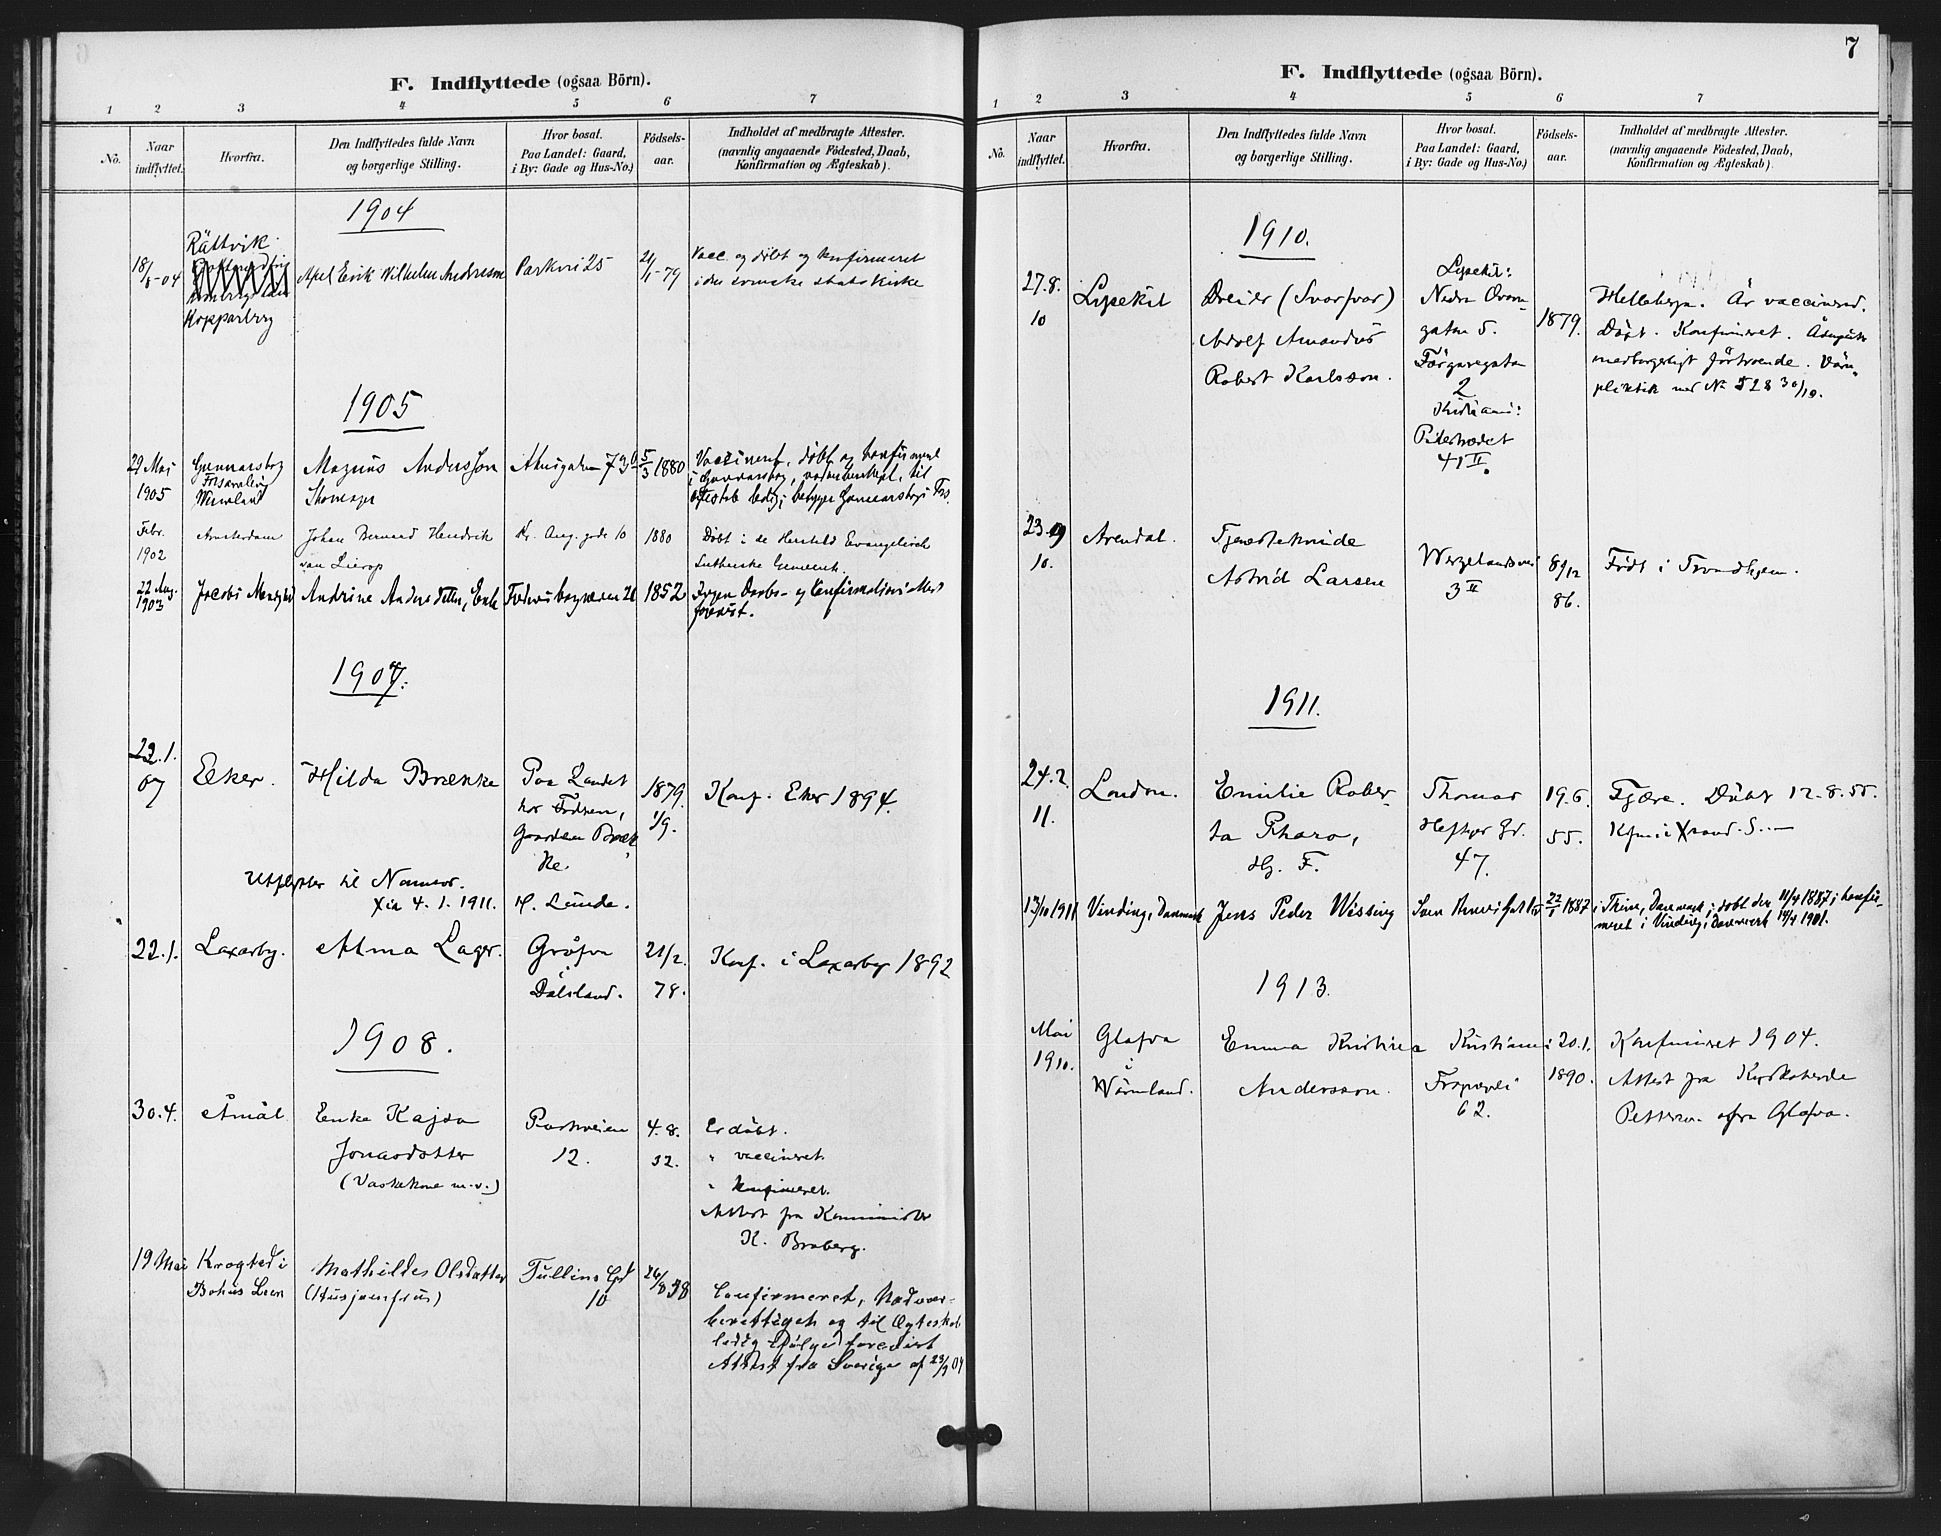 F. Indflyttede (ogsaa Börn).
1 2 3 4 5 6 7
No.
Naar indflyttet.
Hvorfra.
Den Indflyttedes fulde Navn
og borgerlige Stilling.
Hvor bosat.
Paa Landet: Gaard,
i By: Gade og Hus-No.)
Födsels-
aar.
Indholdet af medbragte Attester.
(navnlig angaaende Födested, Daab,
Konfirmation og Ægteskab).
1904
18/8-04
Rättvik
Kopparberg
Axel Erik Vilhelm Andersson
Parkvei 25
21/1-79
Vacc. og döbt og konfirmeret
i den svenske statskirke
1905
29 Mai
1905
Gunnarskog
Wermland
Magnus Andersson
Skomager
5/3 1880
Vaccineret, döbt og konfirmeret
i Gunnarskog,
Febr.
1902
Amsterdam
Johan Bernard Hendrik
van Lierop
Kr. Aug. gade 10
1880
Döbt i de Hersteld Evangelisch
Lutherske Gemeente.
22 Aug.
1903
Jacobs Menighed
Andrine Andersdatter, Enke
1852
Ingen Daabs- og Konfirmations Attest
forevist.
1907.
22.1.
07
Eker.
Hilda Brænke
Paa Landet
hos Fodsen,
Gaarden Bræn-
ke.
1879.
1/9.
Konf. Eker 1894.
Utflytter til Namsos.
4. 1. 1911.
H. Lunde.
22.1.
Laxarby.
Alma Lager.
i
Dalsland.
21/2.
78.
Konf. i Laxarby 1892
1908.
30.4.
Åmål
Enke Kajsa
Jonasdotter
(Vaskekone m.v.)
Parkveien
12.
4.8.
32.
Er döbt.
" vaccineret.
" konfirmeret.
Attest fra Komminister
K. Broberg.
19 Mai
Krogsted i
Bohus Leen
Mathildes Olsdatter
(Husjomfru)
Tullins Gd
10
26/8 58
Confirmeret, Nadver-
berettiget og til Ægteskab
ledig ifölge forevist
Attest fra Sverige af 23/9 04
7
F. Indflyttede (ogsaa Börn).
1 2 3 4 5 6 7
No.
Naar
indflyttet.
Hvorfra.
Den Indflyttedes fulde Navn
og borgerlige Stilling.
Hvor bosat.
Paa Landet: Gaard,
i By: Gade og Hus-No.)
Födsels-
aar.
Indholdet af medbragte Attester.
(navnlig angaaende Födested, Daab,
Konfirmation og Ægteskab).
1910.
27.8.
10
Lysekil
Dreier (Svarfvar)
Adolf Amandus
Robert Karlsson.
Lysekil:
Nedra Qvarn-
gatan 5.
Färgaregatan
2
Kristiania:
Pilestrædet
41 II.
1879.
Är vaccinerad.
Döpt. Konfirmeret.
medborgerligt förtroende. Värn-
pliktig med No 528 30/19.
23.9
10.
Arendal.
Tjenestekvinde
Astrid Larsen
Wergelandsvei
3 II
8/12
86.
Födt i Trondhjem.
1911.
24.2
11.
London.
Emilie Rober-
ta Pharo,
Hj. F.
Thomas
Heftyes Gd.
47.
19.6.
55.
Fjære. Döbt 12.8.55.
Kfm i Xsand. S.—
13/10 1911
Vinding, Danmark
Jens Peder Wissing
22/1 1887
i Thim, Danmark; döbt den 11/4 1887; konfir-
meret i Vinding, Danmark 14/4 1901.
1913.
Mai
1910.
Glafva
i
Wärmland.
Emma Kristina
Andersson.
Kristiania
Frognervei
62.
20.1.
1890.
Konfirmeret 1904.
Attest fra Kyrkoherde
Petterson. afra Glafva.